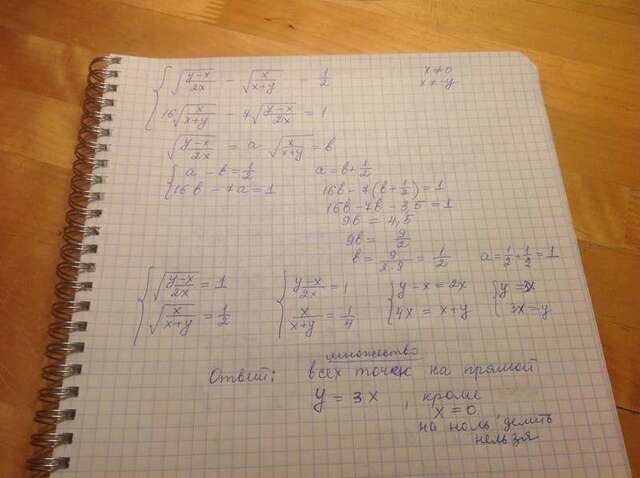 √((y-x)/2x) - √(x/(x+y)) = 1/2
x≠0
x≠-y
16√(x/(x+y)) - 7√((y-x)/2x) = 1
√((y-x)/2x) = a √(x/(x+y)) = b
a - b = 1/2
a = b + 1/2
16b - 7a = 1
16b - 7(b + 1/2) = 1
16b - 7b - 3,5 = 1
9b = 4,5
9b = 9/2
b = 9/(2·9) = 1/2 a = 1/2 + 1/2 = 1
√((y-x)/2x) = 1
√(x/(x+y)) = 1/2
(y-x)/2x = 1
x/(x+y) = 1/4
y - x = 2x
4x = x + y
y = 3x
3x = y
множество
Ответ: всех точек на прямой
y = 3x , кроме
x = 0.
на ноль делить
нельзя